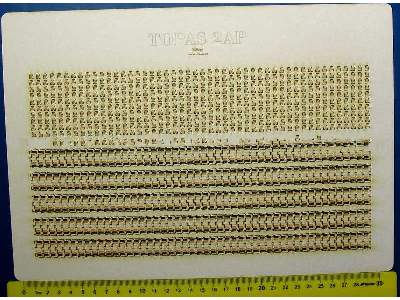 TOPAS 2AP
0 1 2 3 4 5 6 7 8 9 10 11 12 13 14 15 16 17 18 19 20 21 22 23 24 25 26 27 28 29 30